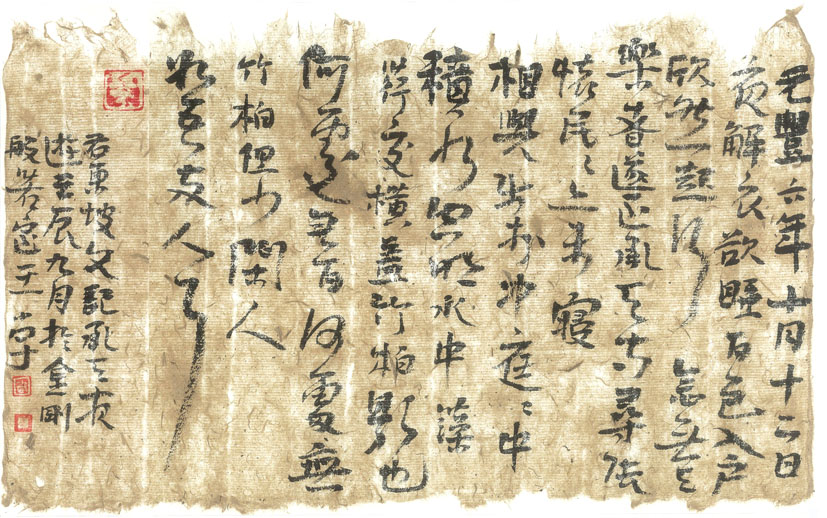 元豐六年十月十二日
夜解衣欲睡月色入戶
欣然起行念無與
樂者遂至承天寺尋張
懷民々亦未寢
相與步於中庭々中
積水空明水中藻
荇交橫蓋竹柏影也
何夜無月何處無
竹柏但少閑人
如吾兩人耳
右東坡文記承天夜
遊壬辰九月於金剛
般若